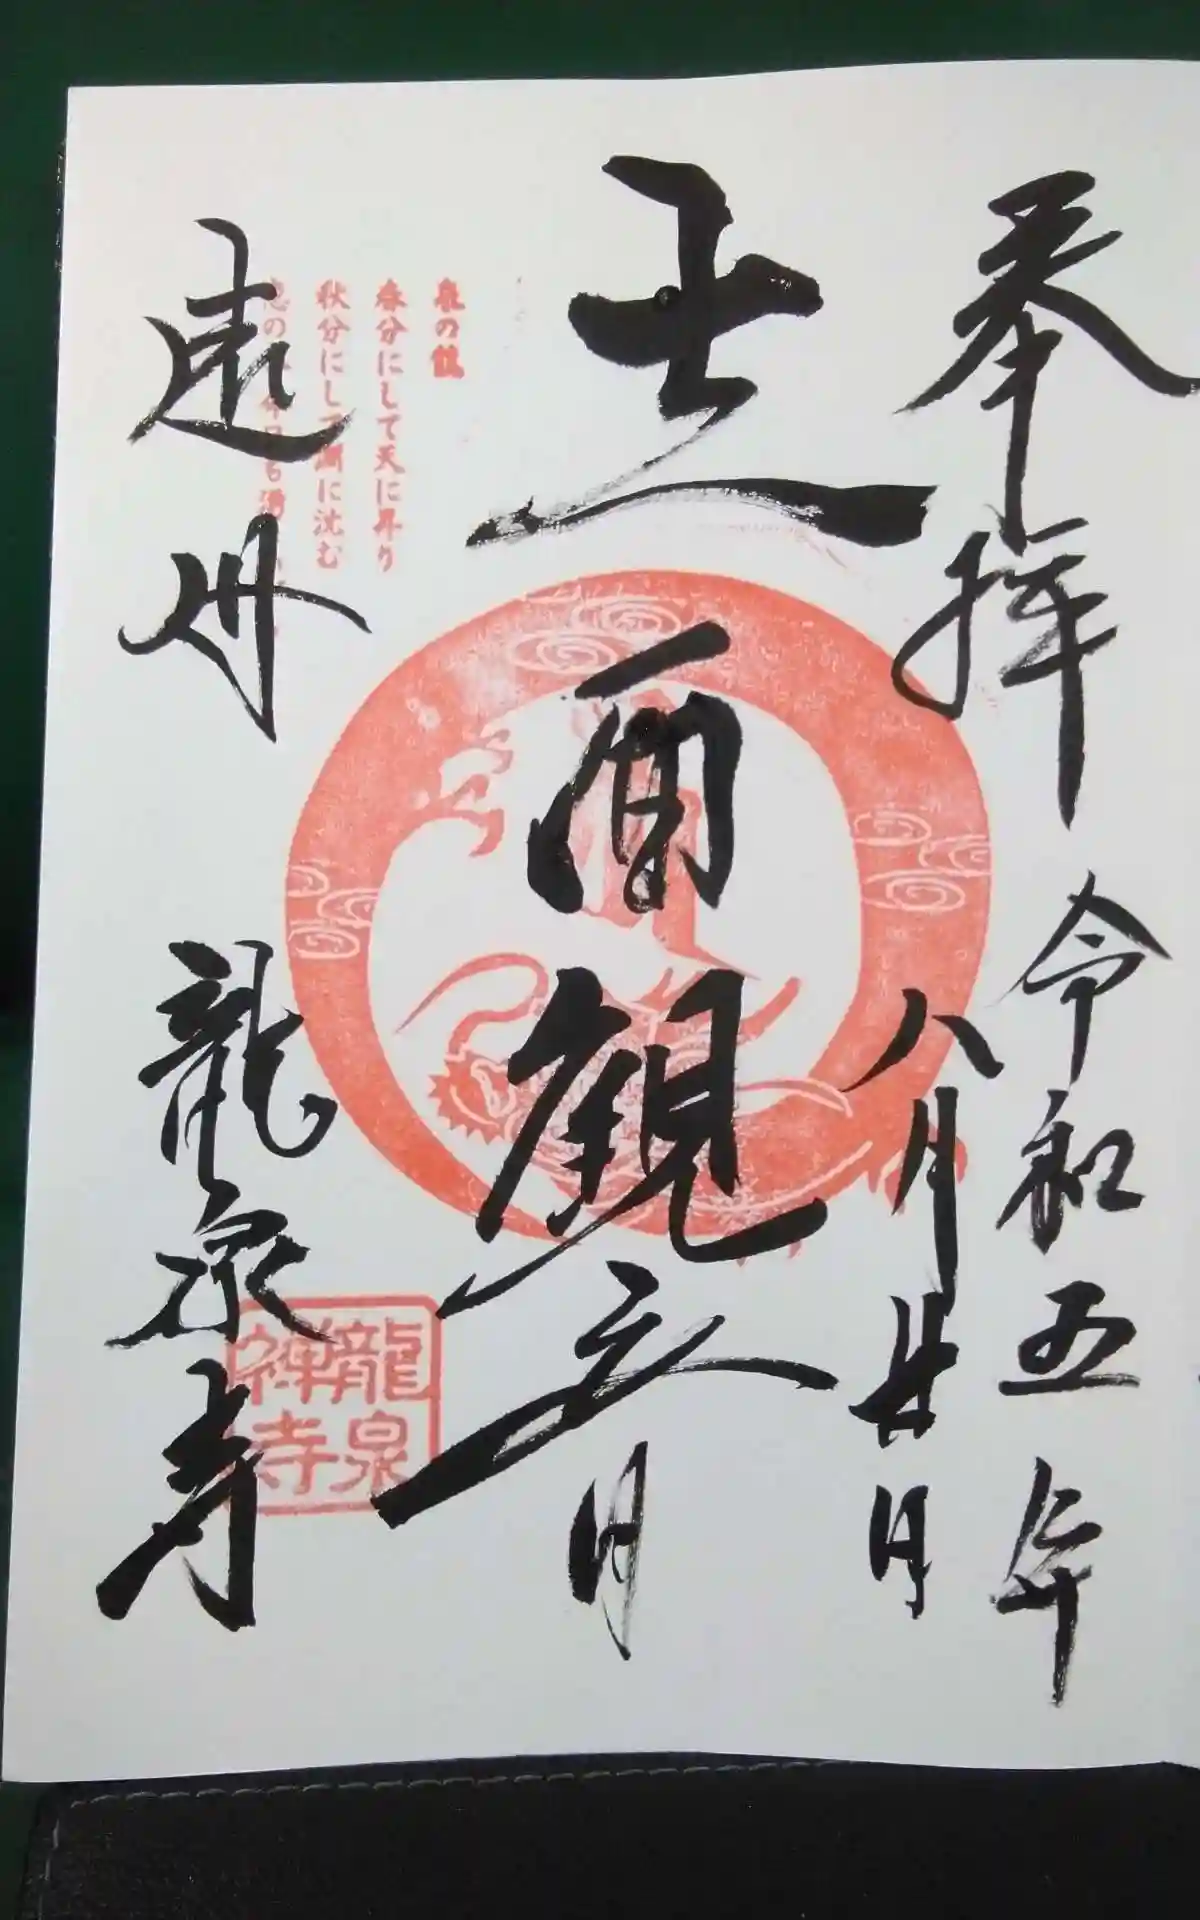 奉拝
令和五年
八月廿日
十一面観音
泉の龍
春分にして天に昇り
秋分にして淵に沈む
遠州
龍泉寺
龍泉
禅寺